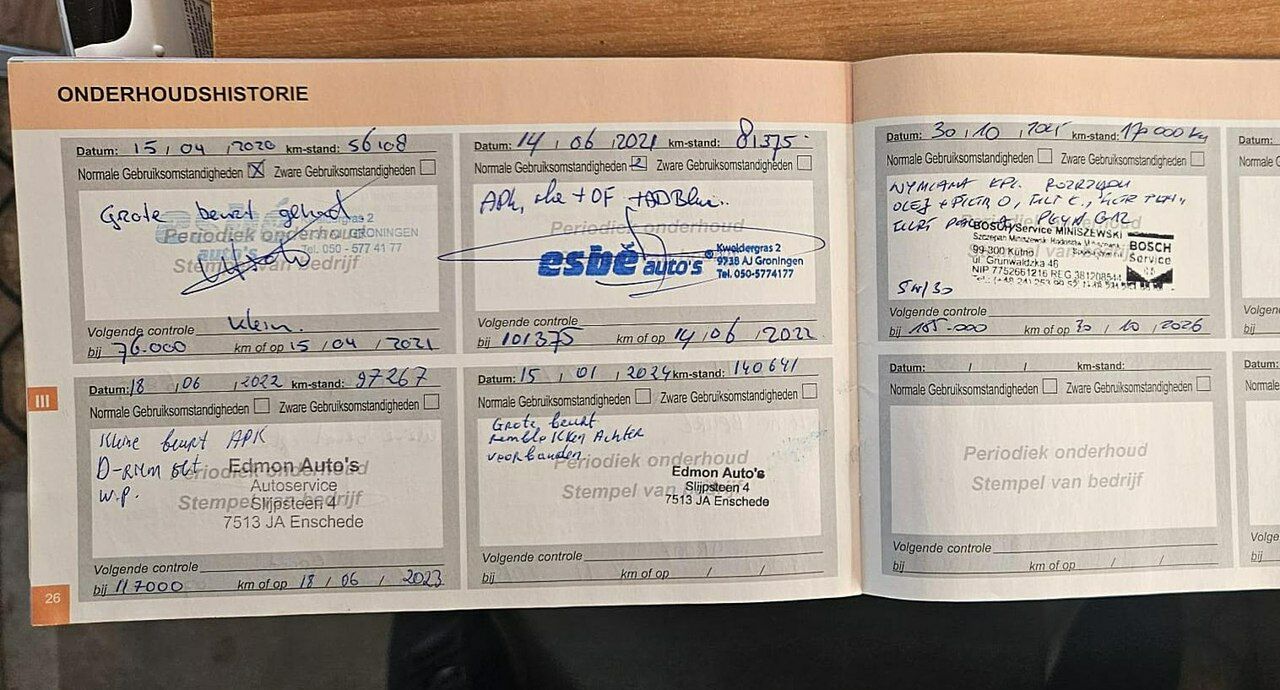 ONDERHOUDSHISTORIE
Datum: 15 / 04 / 2020 km-stand: 56108
Normale Gebruiksomstandigheden X Zware Gebruiksomstandigheden
Grote beurt gehad
Kwoldergras 2
GRONINGEN
Periodiek onderhoud
Tel. 050 - 577 41 77
auto's
Stempel van bedrijf
Volgende controle klein.
bij 76.000 km of op 15 / 04 / 2021
Datum: 14 / 06 / 2021 km-stand: 81375
Normale Gebruiksomstandigheden Zware Gebruiksomstandigheden
APK, olie + OF + ADBlue..
Periodiek onderhoud
esbé auto's
Kwoldergras 2
9738 AJ Groningen
Tel. 050-5774177
Volgende controle
bij 101375 km of op 14 / 06 / 2022
Datum: 18 / 06 / 2022 km-stand: 97267
Normale Gebruiksomstandigheden Zware Gebruiksomstandigheden
beurt APK
D-riem
W.P.
Periodiek onderhoud
Edmon Auto's
Autoservice
Stempel van bedrijf
Slijpsteen 4
7513 JA Enschede
Volgende controle
bij 117000 km of op 18 / 06 / 2023
Datum: 15 / 01 / 2024 km-stand: 140641
Normale Gebruiksomstandigheden Zware Gebruiksomstandigheden
Grote beurt
Achter
voorbanden
Periodiek onderhoud
Edmon Auto's
Stempel van bedrijf
Slijpsteen 4
7513 JA Enschede
Volgende controle
bij km of op / /
III
26
Datum: 30 / 10 / 2025 km-stand: 170 000 km
Normale Gebruiksomstandigheden Zware Gebruiksomstandigheden
WYMIANA KPL. ROZRZĄDU
OLEJ + FILTR O,
PŁYN G12
BOSCH Service MINISZEWSKI
Szczepan Miniszewski
99-300 Kutno
ul. Grunwaldzka 46
NIP 7752661216 REG 381208544
BOSCH
Service
5W/30
Volgende controle
bij 185.000 km of op 30 / 10 / 2026
Datum: / / km-stand:
Normale Gebruiksomstandigheden Zware Gebruiksomstandigheden
Periodiek onderhoud
Stempel van bedrijf
Volgende controle
bij km of op / /
Datum:
Normale
Volge
bij
Datum:
Normale
Volge
bij